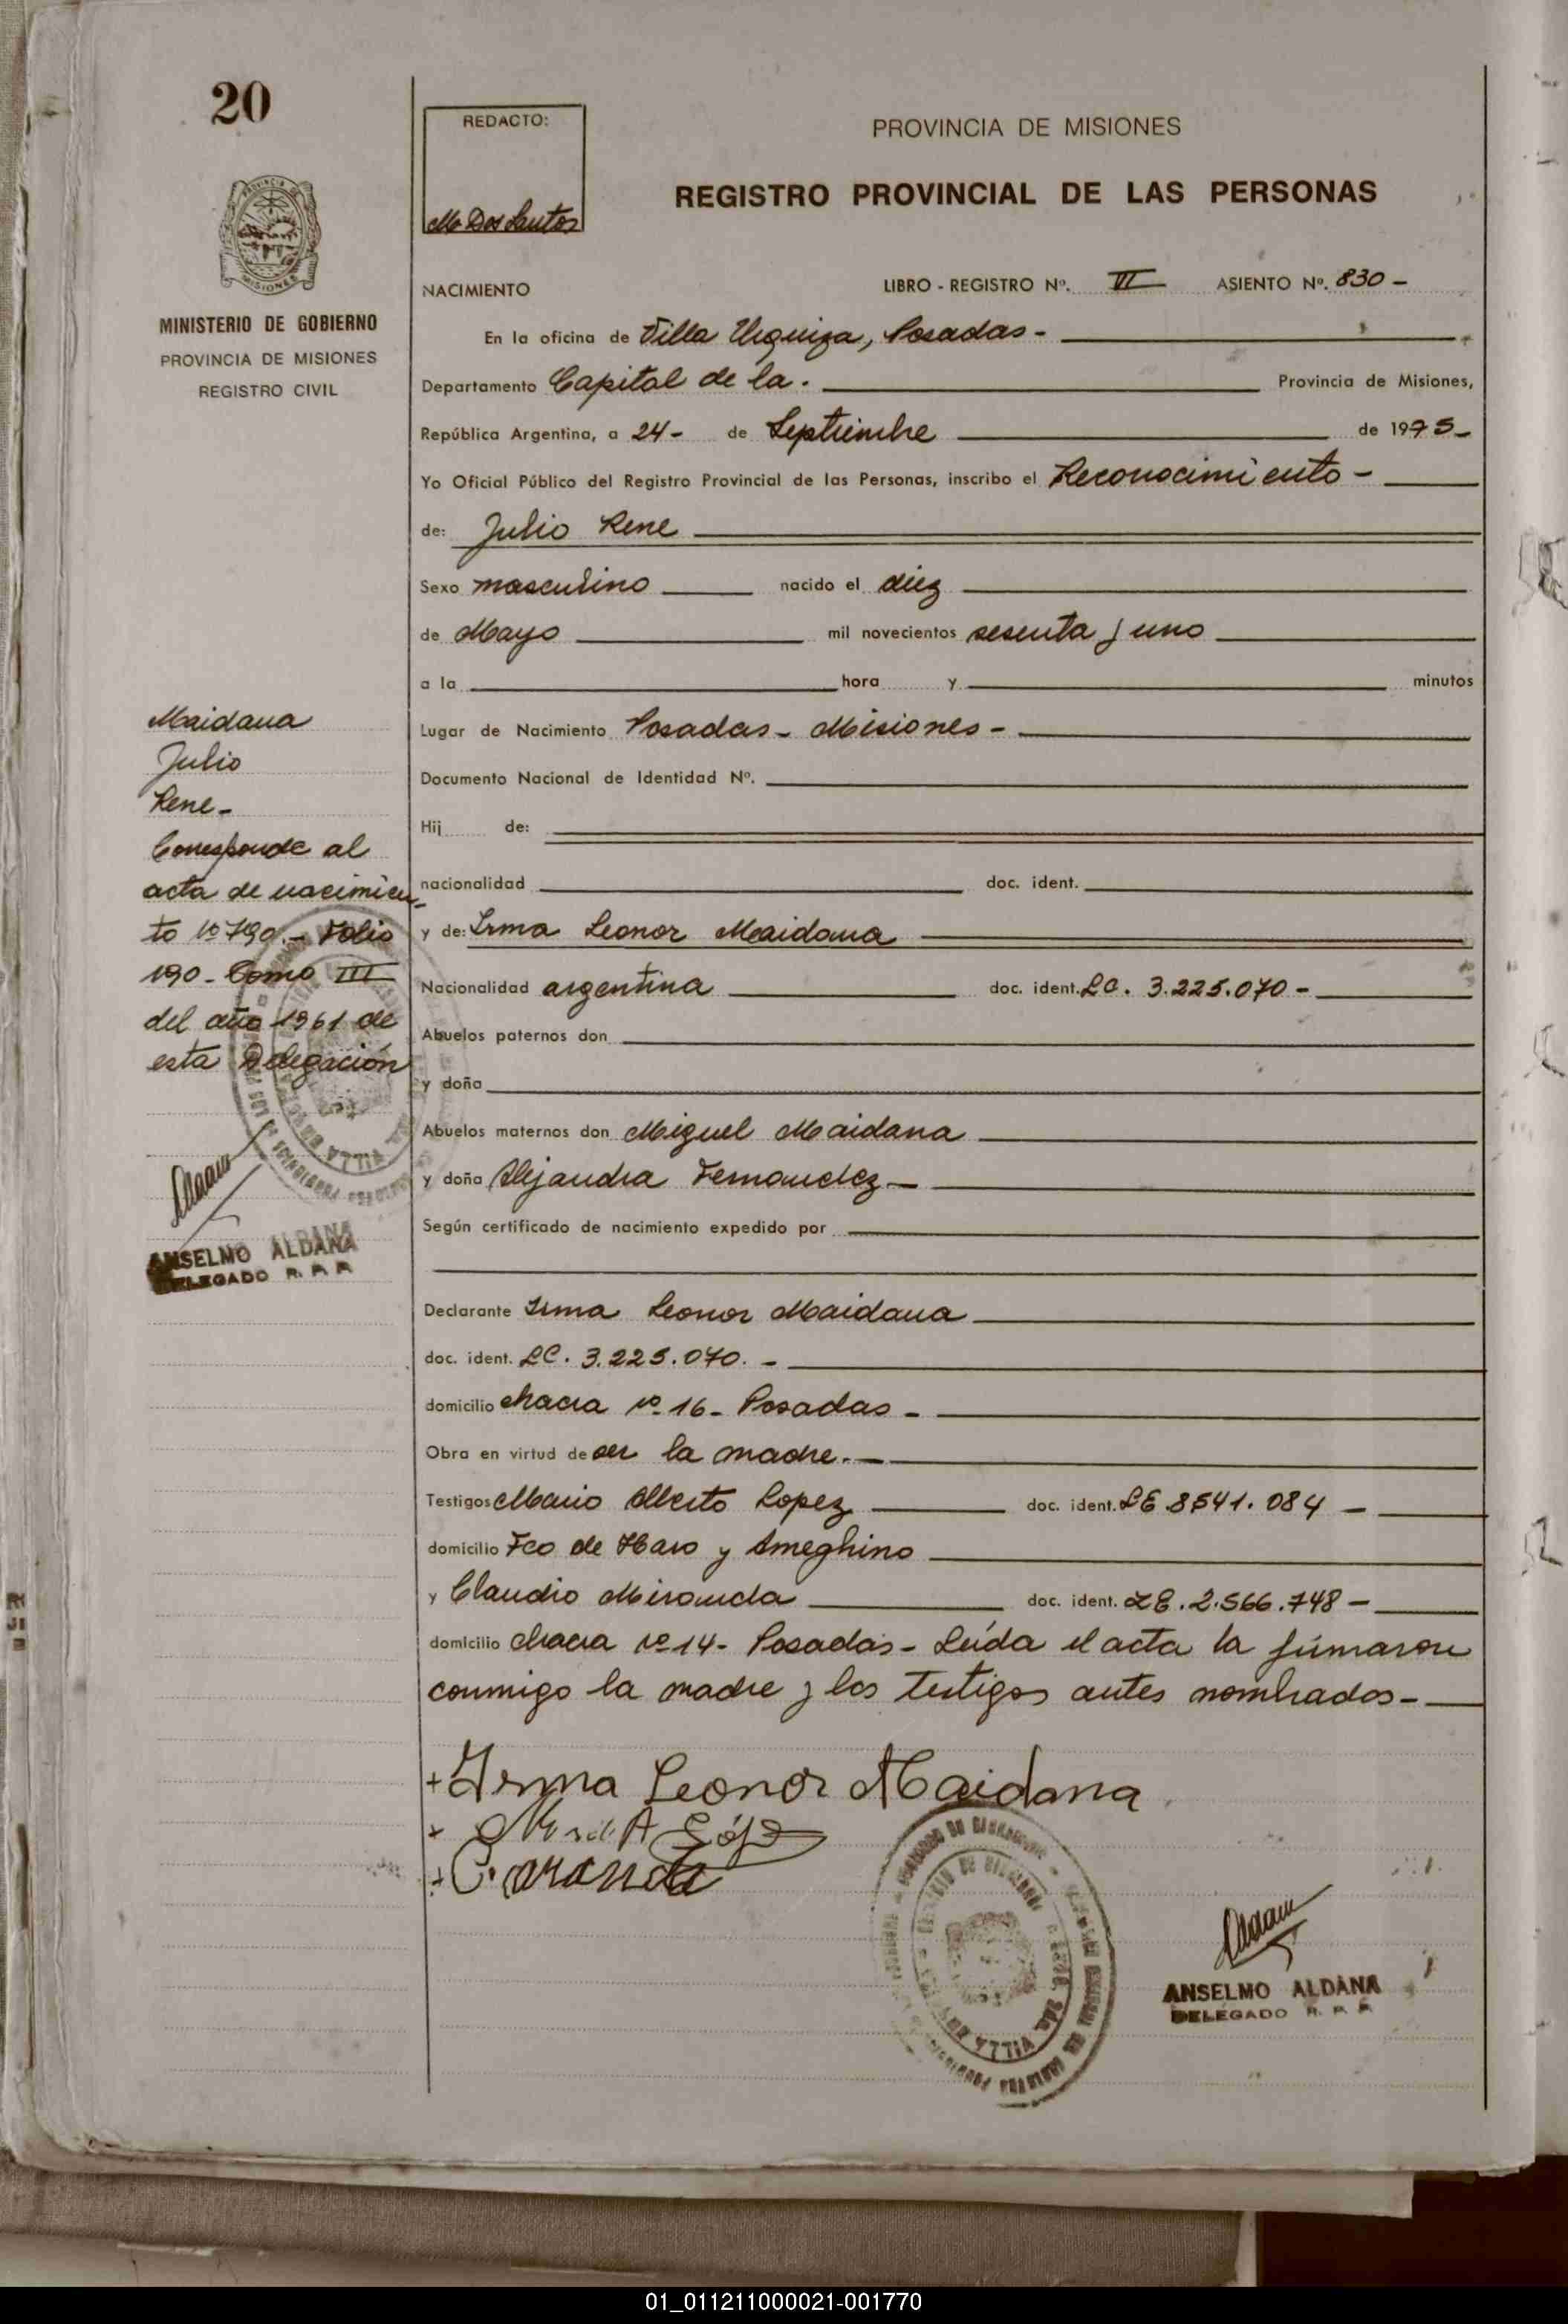 20
REDACTO:
M Dos Santos
PROVINCIA DE MISIONES
REGISTRO PROVINCIAL DE LAS PERSONAS
PROVINCIA DE
MISIONES
MINISTERIO DE GOBIERNO
PROVINCIA DE MISIONES
REGISTRO CIVIL
NACIMIENTO LIBRO - REGISTRO Nº. VI ASIENTO Nº. 830 -
En la oficina de Villa Urquiza, Posadas -
Departamento Capital de la. Provincia de Misiones,
República Argentina, a 24- de Septiembre de 1975-
Yo Oficial Público del Registro Provincial de las Personas, inscribo el Reconocimiento -
de: Julio Rene
Sexo masculino nacido el diez
de Mayo mil novecientos sesenta y uno
a la hora y minutos
Lugar de Nacimiento Posadas - Misiones -
Documento Nacional de Identidad Nº.
Hij de:
nacionalidad doc. ident.
y de: Irma Leonor Maidana
Nacionalidad argentina doc. ident. LC. 3.225.070 -
Abuelos paternos don
y doña
Abuelos maternos don Miguel Maidana
y doña Alejandra Fernandez -
Según certificado de nacimiento expedido por
Declarante Irma Leonor Maidana
doc. ident. LC. 3.225.070. -
domicilio chacra nº 16 - Posadas -
Obra en virtud de ser la madre. -
Testigos Mario Alberto Lopez doc. ident. LE 8541.084 -
domicilio Fco de Haro y Ameghino
y Claudio Miranda doc. ident. LE. 2.566.748 -
domicilio chacra nº 14 - Posadas - Leída el acta la firmaron
conmigo la madre y los testigos antes nombrados -
Maidana
Julio
Rene -
Corresponde al
acta de nacimien-
to nº 790. - Folio
190 - Tomo III
del año 1961 de
esta Delegación
ANSELMO ALDANA
DELEGADO R. P. P.
+ Irma Leonor Maidana
VILLA
ANSELMO ALDANA
DELEGADO R. P. P.
01_011211000021-001770